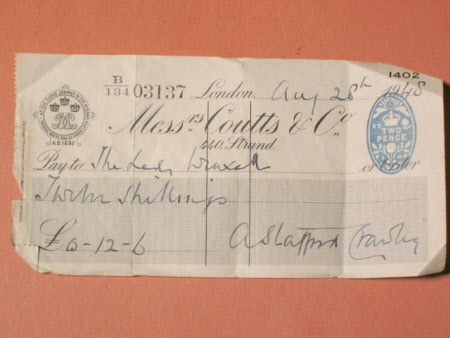 1402
B/134 03137 London, Aug 28th 1948
Messrs Coutts & Co.
440, Strand.
Pay to The Lady or Order
Twelve Shillings
£0-12-6 A Stafford Crawley
TWO PENCE
A.D. 1692